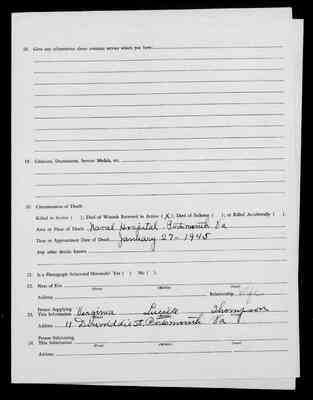 18. Give any information about overseas service which you have
19. Citations, Decorations, Service Medals, etc.
20. Circumstances of Death:
Killed in Action ( ); Died of Wounds Received in Action (X); Died of Sickness ( ); or Killed Accidentally ( ).
Area or Place of Death Naval Hospital Portsmouth Va
Date or Approximate Date of Death January 27-1945
Any other details known
21. Is a Photograph Submitted Herewith? Yes ( ) No ( ).
22. Next of Kin
Address Relationship
Person Supplying Virginia Lucille Thompson
23. This Information
Address 11 Portsmouth Va
Person Submitting
24. This Information
Address